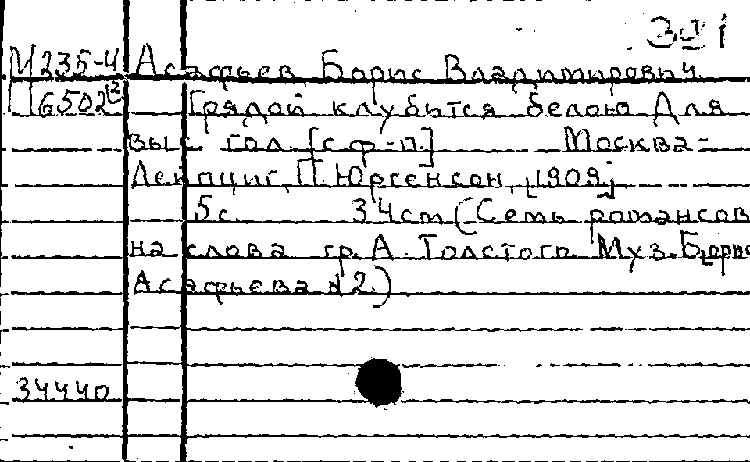 3-1
М235-4 Асафьев Борис Владимирович
П6502 Грядой клубится белою Для
выс гол [с ф-п.] Москва-
Лейпциг, П. Юргенсон, [1909]
5с 34cm (Семь романсов
на слова гр. А. Толстого Муз. Борис
Асафьева №2.)
34440